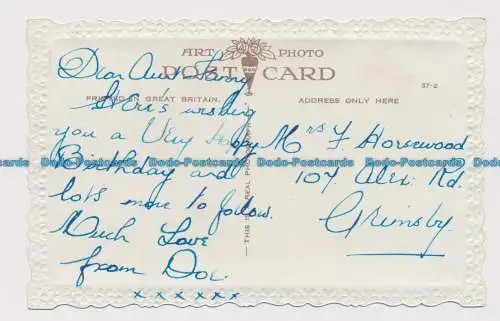 ART PHOTO
POST CARD
PRINTED IN GREAT BRITAIN.
ADDRESS ONLY HERE
37-2
Dear Aunt Fanny
wishing
you a Very Happy
Birthday and
lots more to follow.
Much Love
from Doc.
x x x x x x
Mrs F Horsewood
107 Alex. Rd.
Grimsby.
THIS IS A REAL PHOTO
Dodo-Postcards Dodo-Postcards Dodo-Postcards Dodo-Postcards